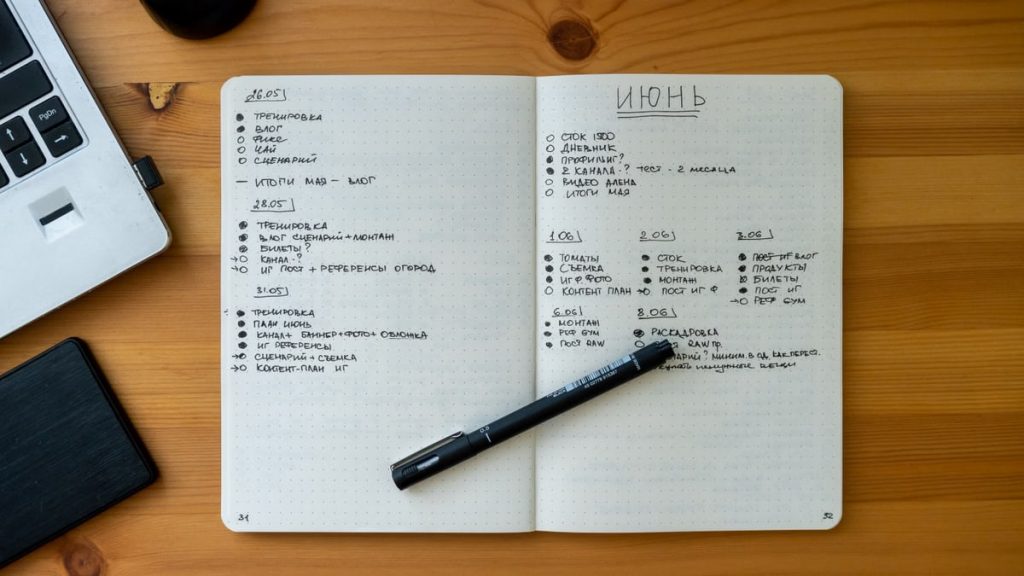 26.05
● ТРЕНИРОВКА
● ВЛОГ
○ ФИКС
○ ЧАЙ
○ СЦЕНАРИЙ
— ИТОГИ МАЯ – ВЛОГ
28.05
● ТРЕНИРОВКА
● ВЛОГ СЦЕНАРИЙ + МОНТАЖ
● БИЛЕТЫ?
→○ КАНАЛ - ?
→○ ИГ ПОСТ + РЕФЕРЕНСЫ ОГОРОД
31.05
● ТРЕНИРОВКА
● ПЛАН ИЮНЬ
● КАНАЛ + БАННЕР + ФОТО + ОБЛОЖКА
● ИГ РЕФЕРЕНСЫ
→○ СЦЕНАРИЙ + СЪЕМКА
→○ КОНТЕНТ-ПЛАН ИГ
31
ИЮНЬ
○ СТОК 1500
○ ДНЕВНИК
● ПРОФИЛЬ ИГ?
● 2 КАНАЛА - ? ТЕСТ - 2 МЕСЯЦА
○ ВИДЕО АЛЕНА
○ ИТОГИ МАЯ
1.06
● ТОМАТЫ
● СЪЕМКА
● ИГ Ф. ФОТО
○ КОНТЕНТ ПЛАН
2.06
● СТОК
● ТРЕНИРОВКА
● МОНТАЖ
→○ ПОСТ ИГ Ф
3.06
● ПОСТ ИГ ВЛОГ
● ПРОДУКТЫ
БИЛЕТЫ
● ПОСТ ИГ
→○ РЕФ БУМ
6.06
● МОНТАЖ
● РЕФ БУМ
● ПОСТ RAW
8.06
● РАСКАДРОВКА
○ RAW ПР.
? МИНИМ. В ОД. КАК ПЕРЕСТ.
ненужные вещи
32
PgDn